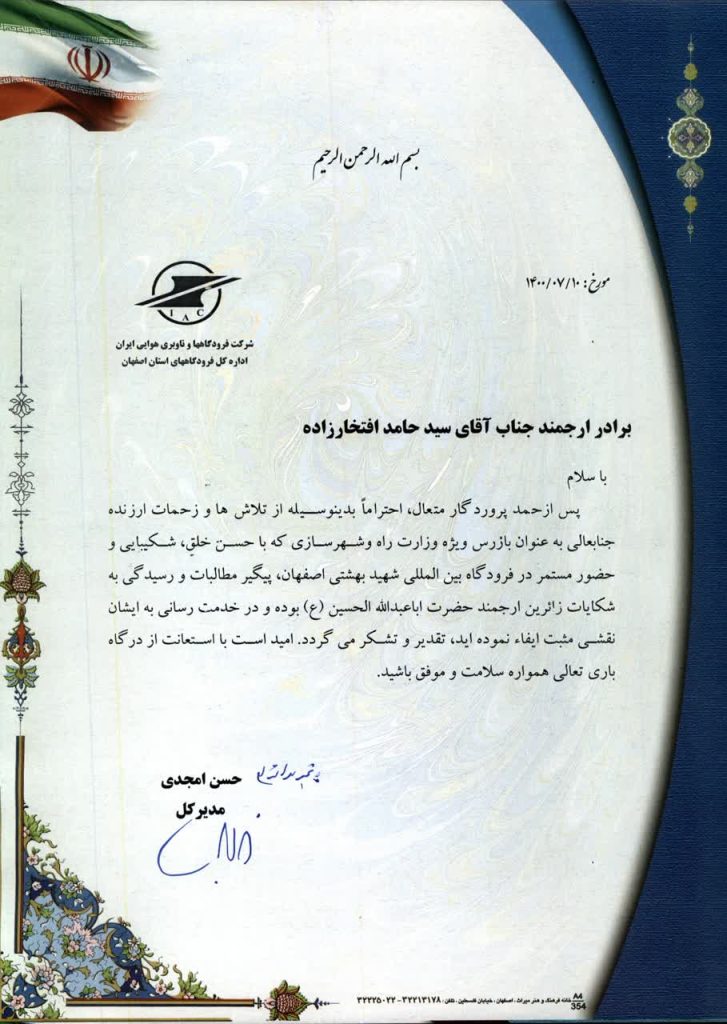 بسم الله الرحمن الرحیم
مورخ: ۱۴۰۰/۰۷/۱۰
I A C
شرکت فرودگاهها و ناوبری هوایی ایران
اداره کل فرودگاههای استان اصفهان
برادر ارجمند جناب آقای سید حامد افتخارزاده
با سلام
پس ازحمد پروردگار متعال، احتراماً بدینوسیله از تلاش ها و زحمات ارزنده
جنابعالی به عنوان بازرس ویژه وزارت راه وشهرسازی که با حسن خلقِ، شکیبایی و
حضور مستمر در فرودگاه بین المللی شهید بهشتی اصفهان، پیگیر مطالبات و رسیدگی به
شکایات زائرین ارجمند حضرت اباعبدالله الحسین (ع) بوده و در خدمت رسانی به ایشان
نقشی مثبت ایفاء نموده اید، تقدیر و تشکر می گردد. امید است با استعانت از درگاه
باری تعالی همواره سلامت و موفق باشید.
حسن امجدی
مدیرکل
A4
354
خانه فرهنگ و هنر میراث. اصفهان. خیابان فلسطین. تلفن: ۳۲۲۱۳۱۷۸ - ۳۲۲۲۵۰۲۲